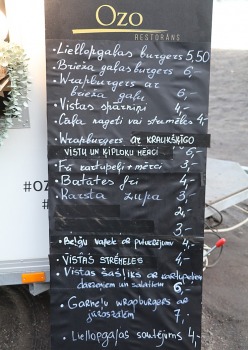 Ozo
RESTORĀNS
• Liellopgaļas burgers 5,50
• Brieža gaļas burgers 6,-
• Wrapburgers ar
brieža gaļu 6,-
• Vistas spārniņi 4,-
• Cāļa nageti vai stumbles 4,-
• Wrapburgers AR KRAUKŠĶĪGO
VISTU UN ĶIPLOKU MĒRCI 5,-
• Frī kartupeļi + mērci 3,-
• Batātes frī 4,-
• Karsta zupa 3,-
2,-
3,-
• Beļģu vafele ar putukrējumu 4,-
• VISTAS STRĒMELES 4,-
• Vistas šašliks ar kartupeļiem
dārzeņiem un salātiem 6,-
• Garneļu wrapburgers ar
jūraszālēm 7,-
• Liellopgaļas sautējums 4,-
#OZ
#